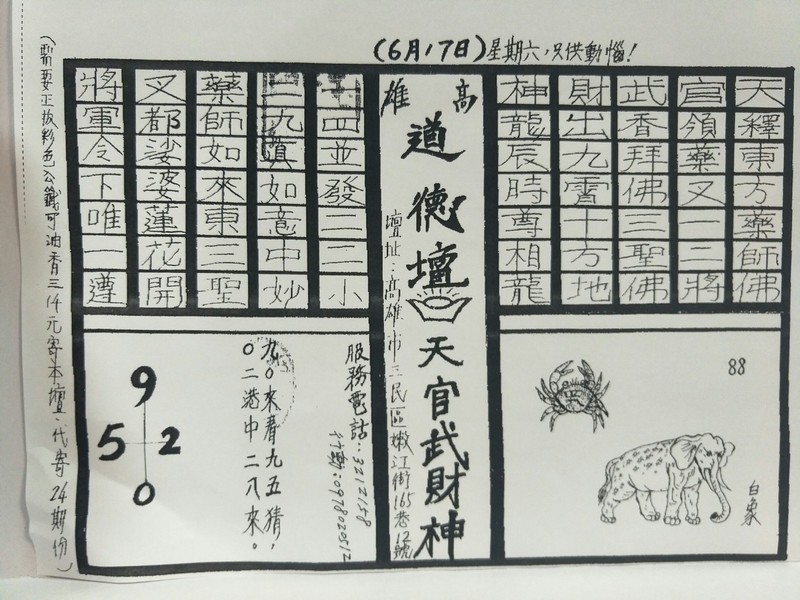 (6月17日)星期六,只供動惱!
天釋東方藥師佛
官領藥叉一二將
武香拜佛三聖佛
財出九霄十方地
神龍辰時尊相龍
高雄
道德壇
天官武財神
壇址:高雄市三民區嫩江街165巷12號
四並發二二小
九順如意中妙
藥師如來東三聖
叉都娑婆蓮花開
將軍令下唯一遵
88
白象
服務電話:3212158
行動:0978020512
九0來春九五猜,
0二港中二八來。
9
5 2
0
(需要正版彩色公籤可油香三仟元寄本壇·代寄24期份)